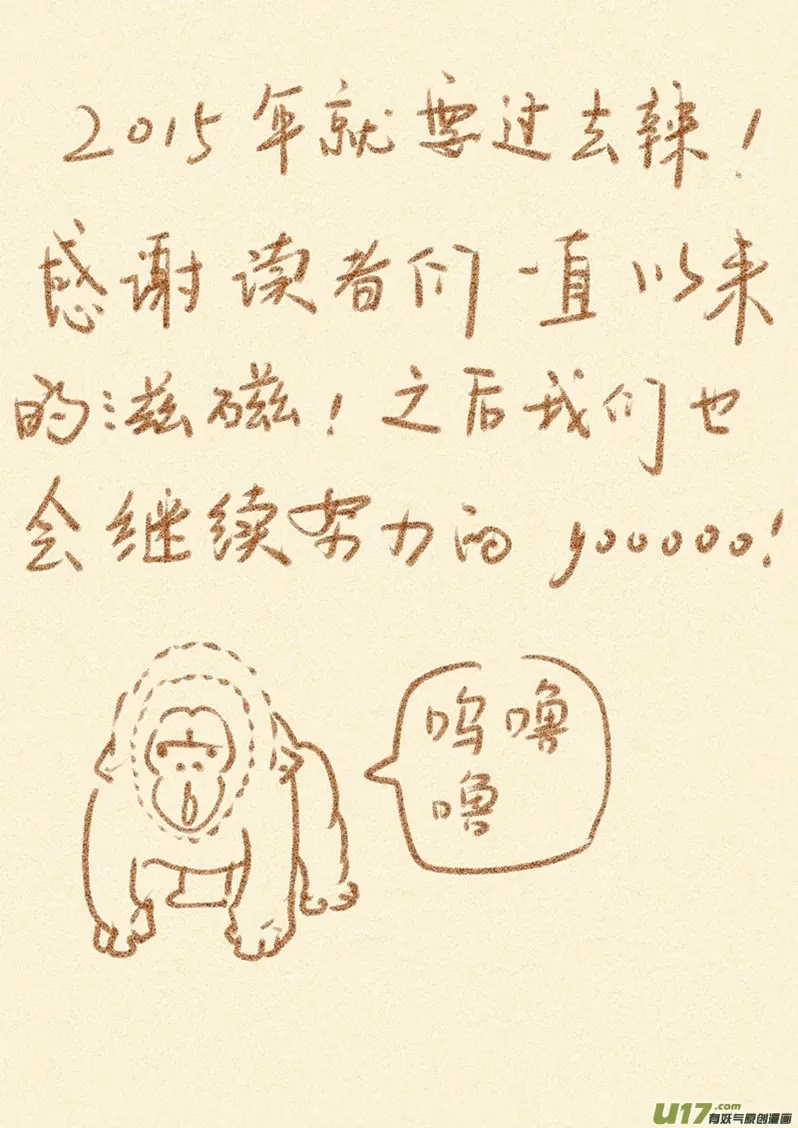 2015年就要过去辣!
感谢读者们一直以来
的滋磁!之后我们也
会继续努力的 yooooo!
呜噜
噜
U17.com
有妖气原创漫画